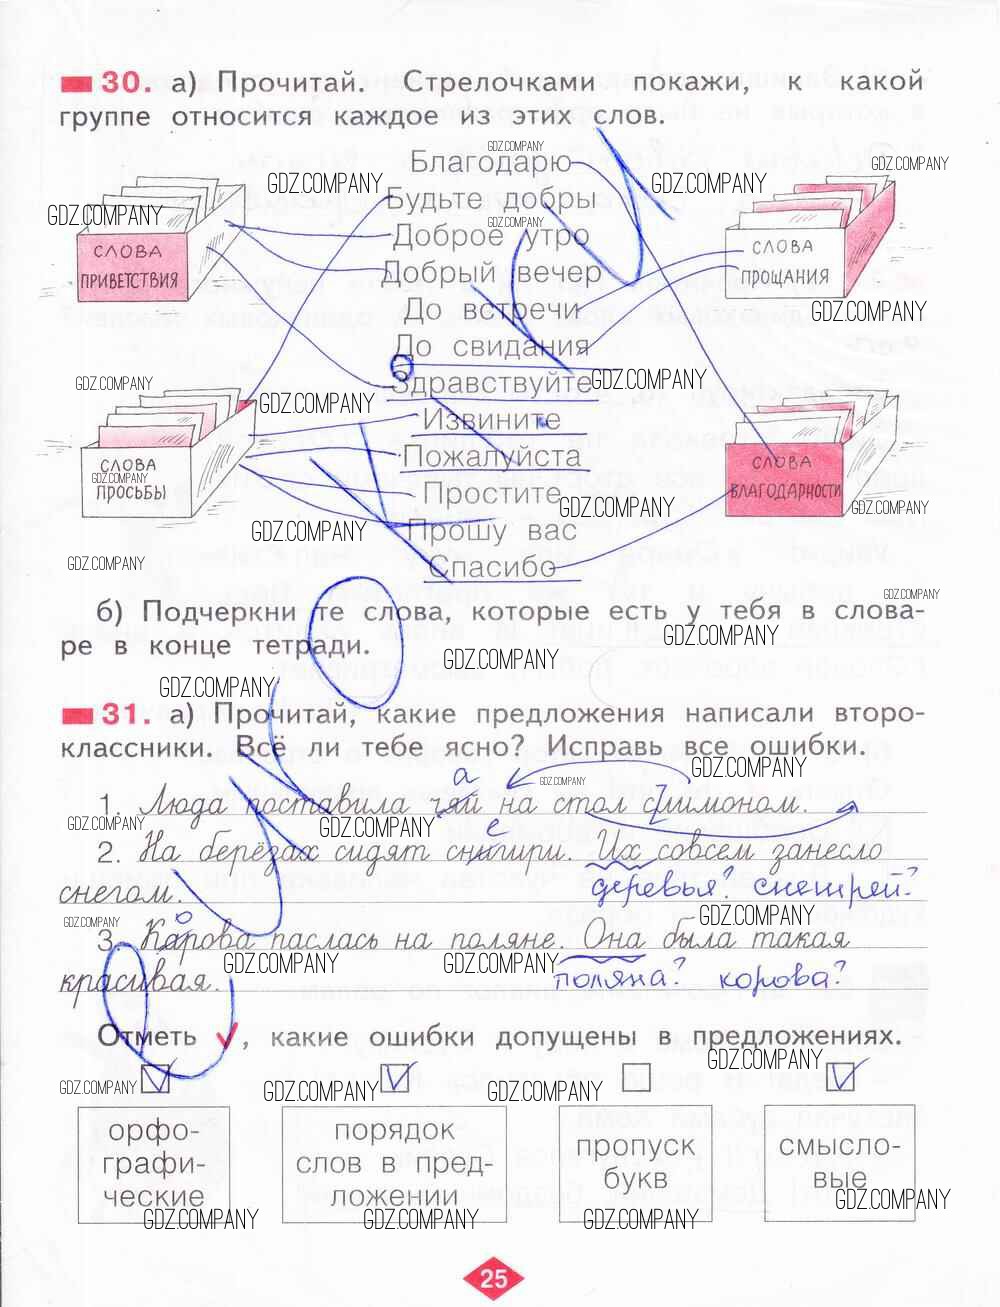 30. а) Прочитай. Стрелочками покажи, к какой
группе относится каждое из этих слов.
СЛОВА
ПРИВЕТСТВИЯ
СЛОВА
ПРОСЬБЫ
Благодарю
Будьте добры
Доброе утро
Добрый вечер
До встречи
До свидания
Здравствуйте
Извините
Пожалуйста
Простите
Прошу вас
Спасибо
СЛОВА
ПРОЩАНИЯ
СЛОВА
БЛАГОДАРНОСТИ
б) Подчеркни те слова, которые есть у тебя в слова-
ре в конце тетради.
31. а) Прочитай, какие предложения написали второ-
классники. Всё ли тебе ясно? Исправь все ошибки.
а
1. Люда поставила чяй на стол слимоном.
е
2. На берёзах сидят снигири. Их совсем занесло
снегом.
деревья? снегирей?
о
3. Карова паслась на поляне. Она была такая
красивая.
поляна? корова?
Отметь √, какие ошибки допущены в предложениях.
орфо-
графи-
ческие
порядок
слов в пред-
ложении
пропуск
букв
смысло-
вые
25
GDZ.COMPANY